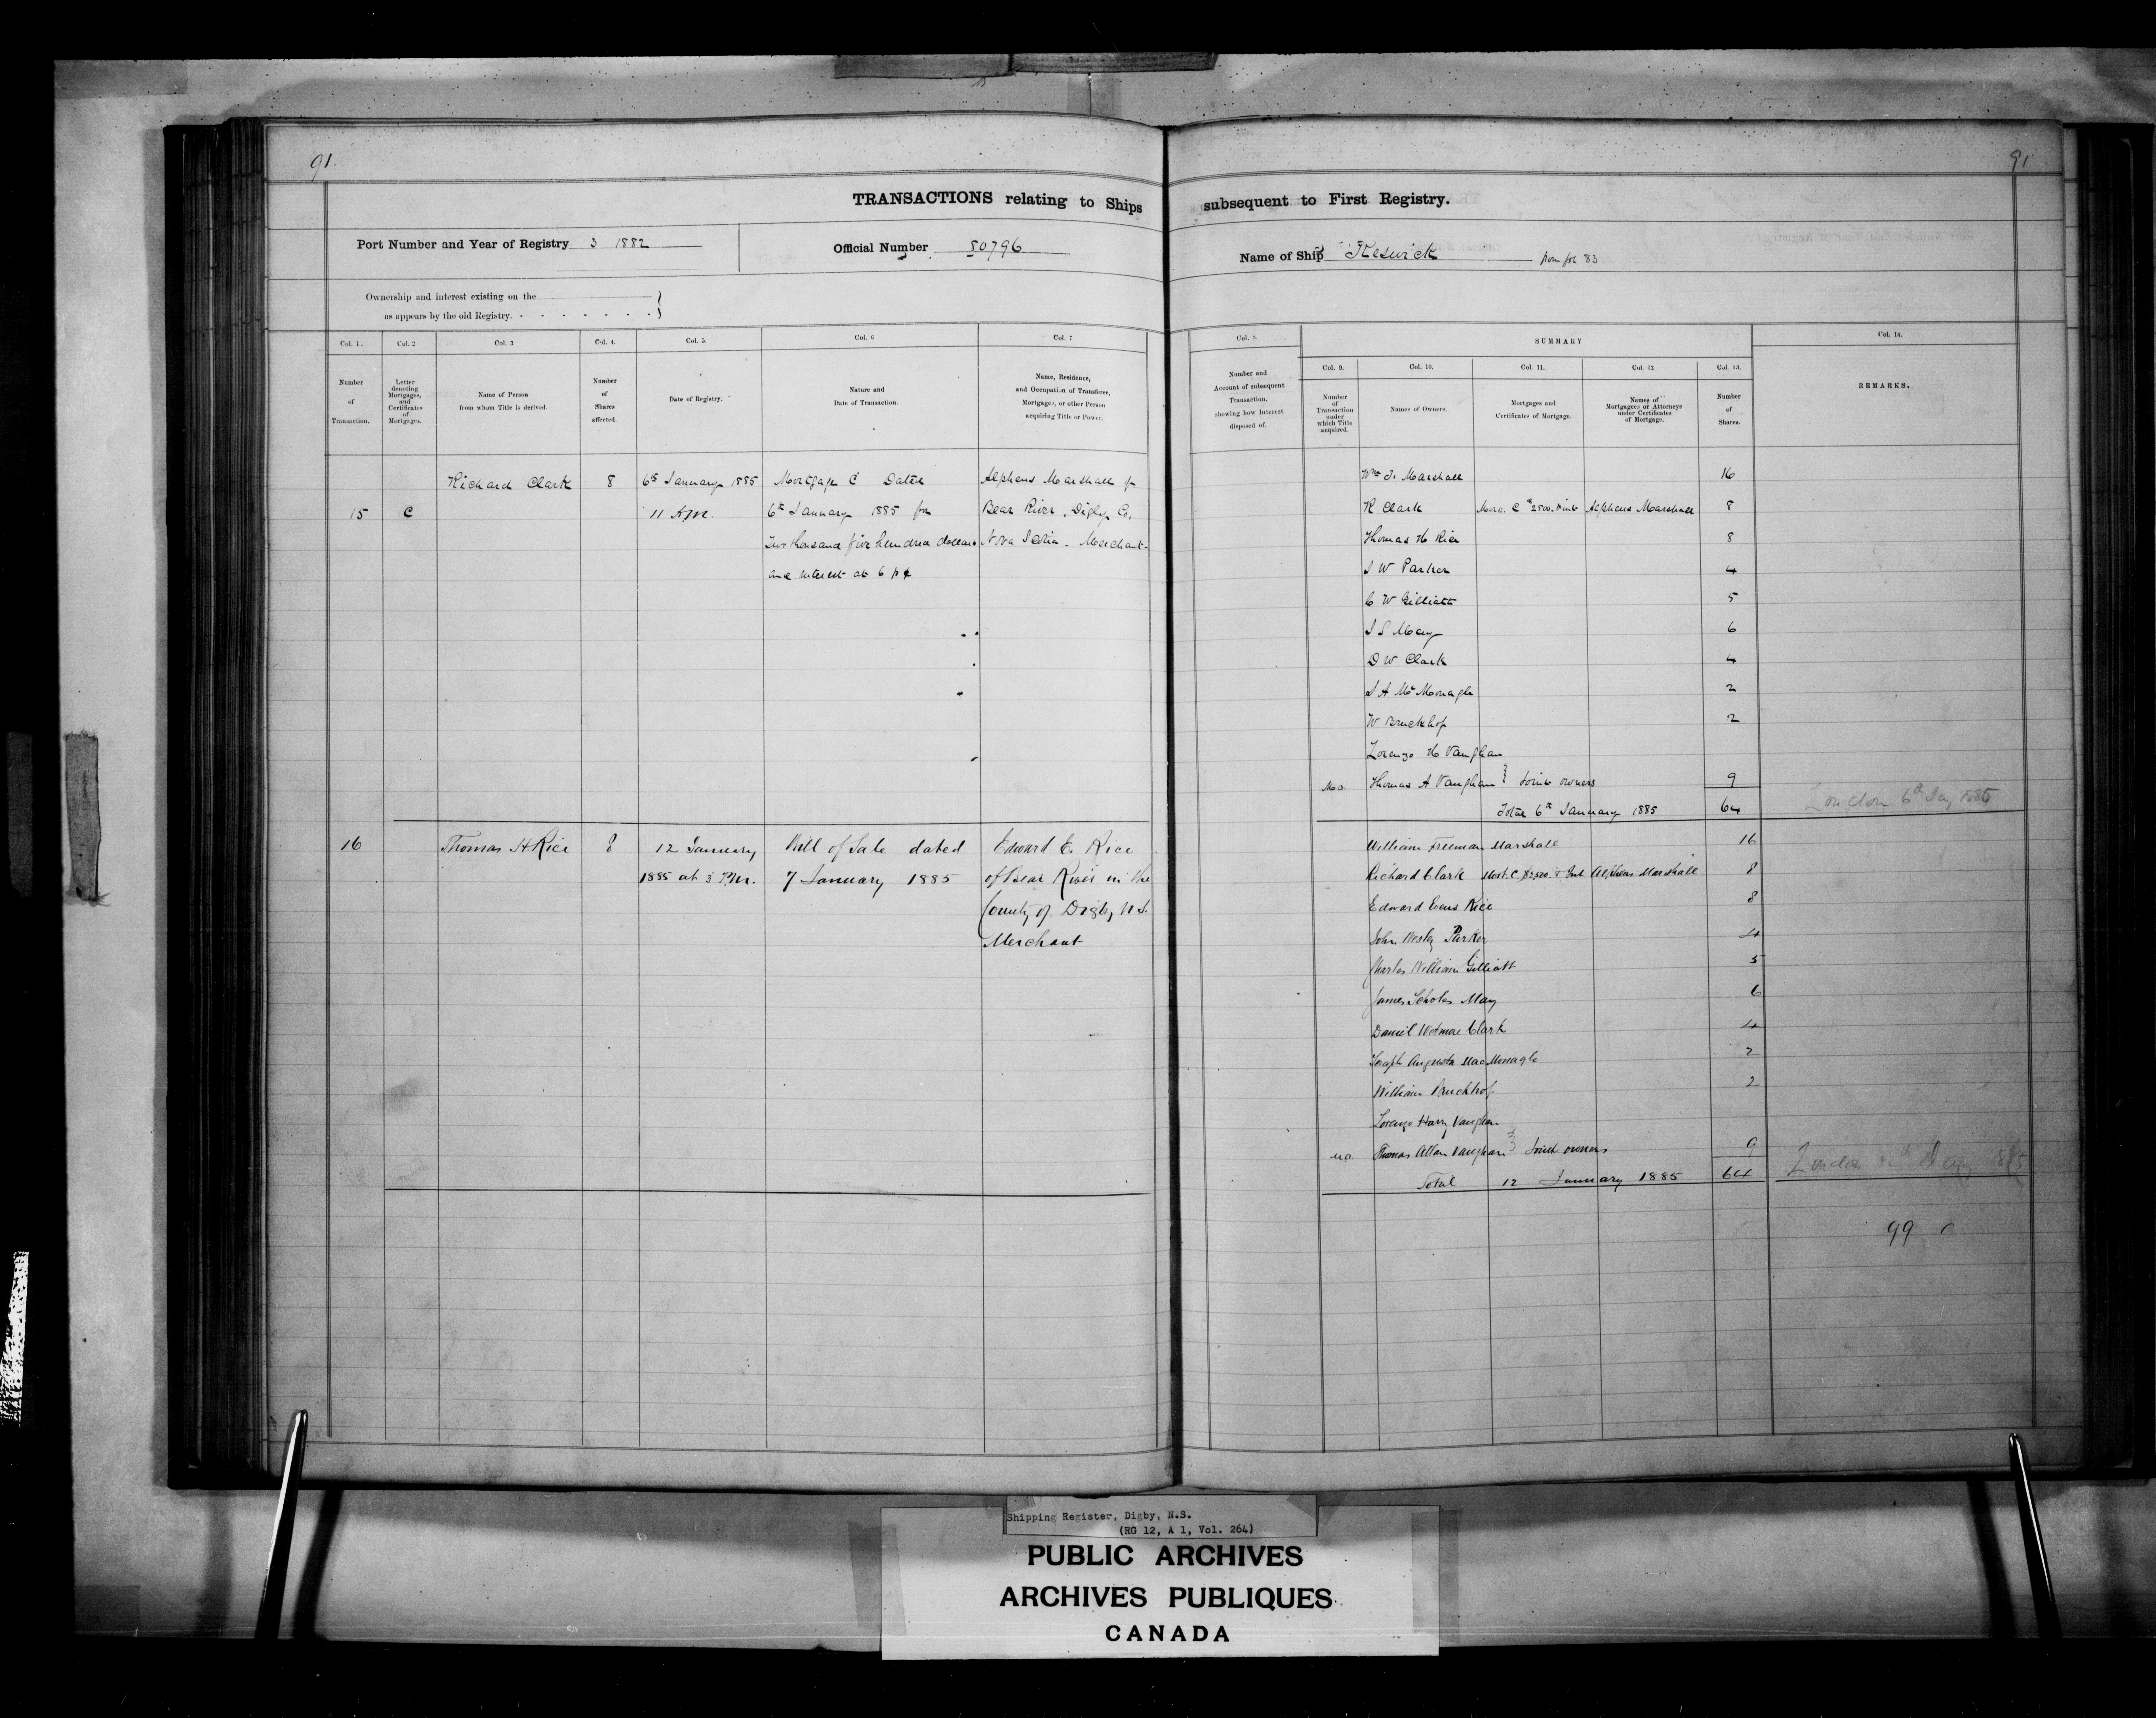 91.
91
TRANSACTIONS relating to Ships subsequent to First Registry.
Port Number and Year of Registry 3 1882
Official Number 80796
Name of Ship "Keswick from fol 83
Ownership and interest existing on the
as appears by the old Registry.
Col. 1.
Col. 2
Col. 3
Col. 4.
Col. 5.
Col. 6
Col. 7
Number
of
Transaction.
Letter
denoting
Mortgages,
and
Certificates
of
Mortgages.
Name of Person
from whom Title is derived.
Number
of
Shares
affected.
Date of Registry.
Nature and
Date of Transaction.
Name, Residence,
and Occupation of Transferee,
Mortgagee, or other Person
acquiring Title or Power.
Richard Clark 8 6th January 1885 Mortgage C Dated Alpheus Marshall of
15 C 11 A.M. 6th January 1885 for Bear River, Digby Co.
Two thousand five hundred dollars Nova Scotia - Merchant-
and interest at 6 p ct
16 Thomas H. Rice 8 12 January Bill of Sale dated Edward E. Rice
1885 at 3 P.M. 7 January 1885 of Bear River in the
County of Digby N.S.
Merchant
Col. 8
SUMMARY
Col. 14.
Number and
Account of subsequent
Transaction,
showing how Interest
disposed of.
Col. 9.
Col. 10.
Col. 11.
Col. 12
Col. 13.
Number
of
Transaction
under
which Title
acquired.
Names of Owners.
Mortgages and
Certificates of Mortgage.
Names of
Mortgagees or Attorneys
under Certificates
of Mortgage.
Number
of
Shares.
REMARKS.
Wm F. Marshall 16
R Clark Morg. C $2500. & int Alpheus Marshall 8
Thomas H Rice 8
J W Parker 4
C W Gilliatt 5
J S May 6
D W Clark 4
J A McMonagle 2
W Bruckhof 2
Lorenzo H Vaughan
M.O. Thomas A Vaughan } Joint owners 9
Total 6th January 1885 64 London 6th Jany 1885
William Freeman Marshall 16
Richard Clark Mort. C. $2,500. & Int Alpheus Marshall 8
Edward Evans Rice 8
John Wesley Parker 4
Charles William Gilliatt 5
James Scholes May 6
Daniel Wetmore Clark 4
Joseph Augusta MacMonagle 2
William Bruckhof 2
Lorenzo Harry Vaughan
M.O. Thomas Allan Vaughan } Joint owners 9
Total 12 January 1885 64 London 12th Jany 1885
99
Shipping Register, Digby, N.S.
(RG 12, A 1, Vol. 264)
PUBLIC ARCHIVES
ARCHIVES PUBLIQUES
CANADA